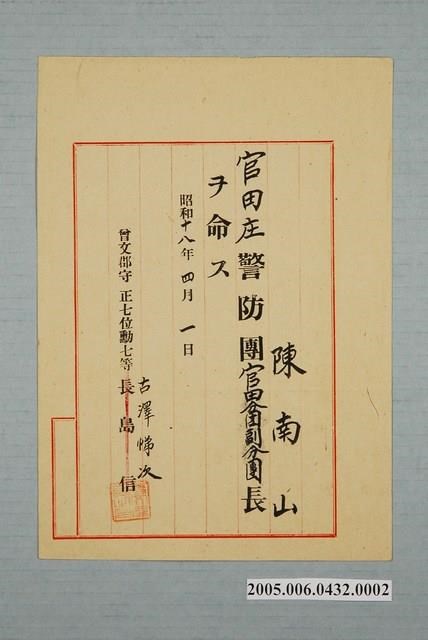 陳南山
官田庄警防團官田分團副分團長
ヲ命ス
昭和十八年四月一日
曾文郡守 正七位勳七等 長島信
古澤悌次
2005.006.0432.0002